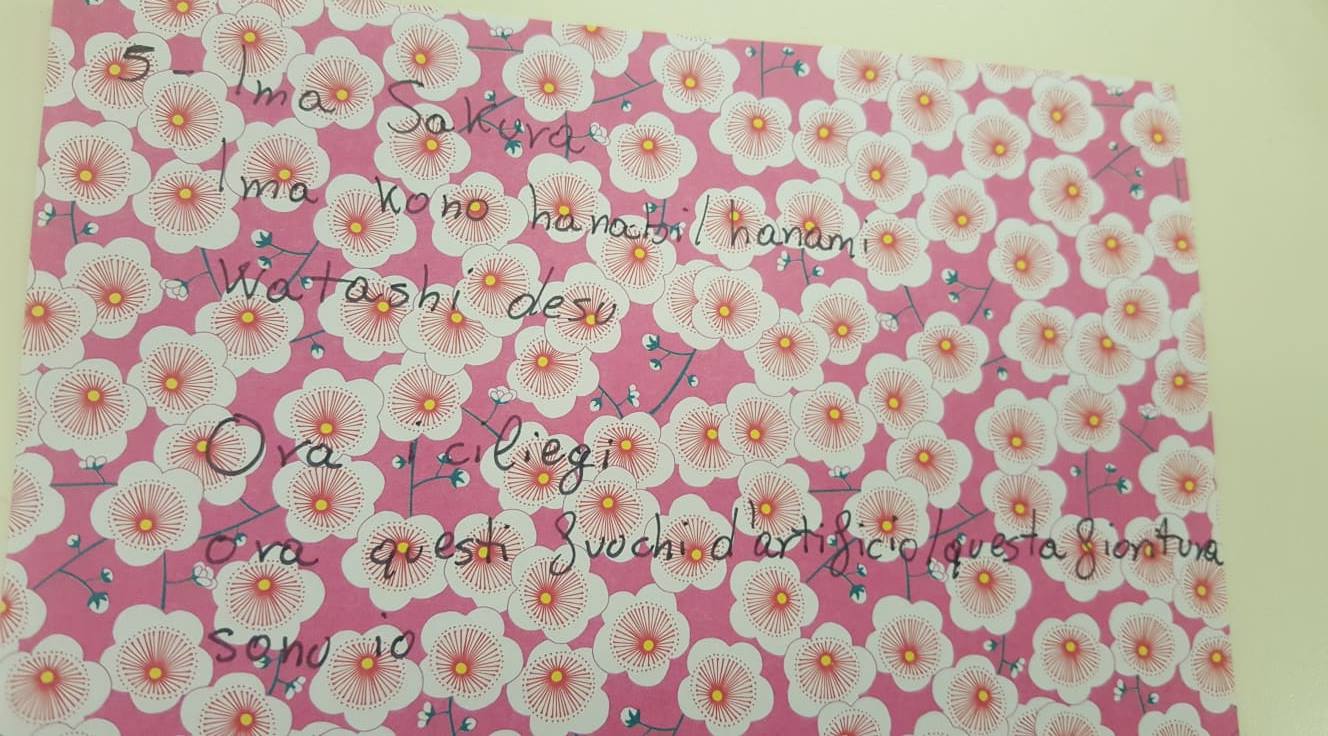 5- Ima Sakura
Ima kono hanabi/hanami
Watashi desu
Ora i ciliegi
ora questi fuochi d'artificio/questa fioritura
sono io